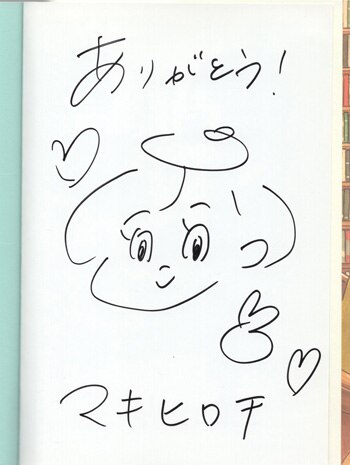 ありがとう!
マキヒロチ